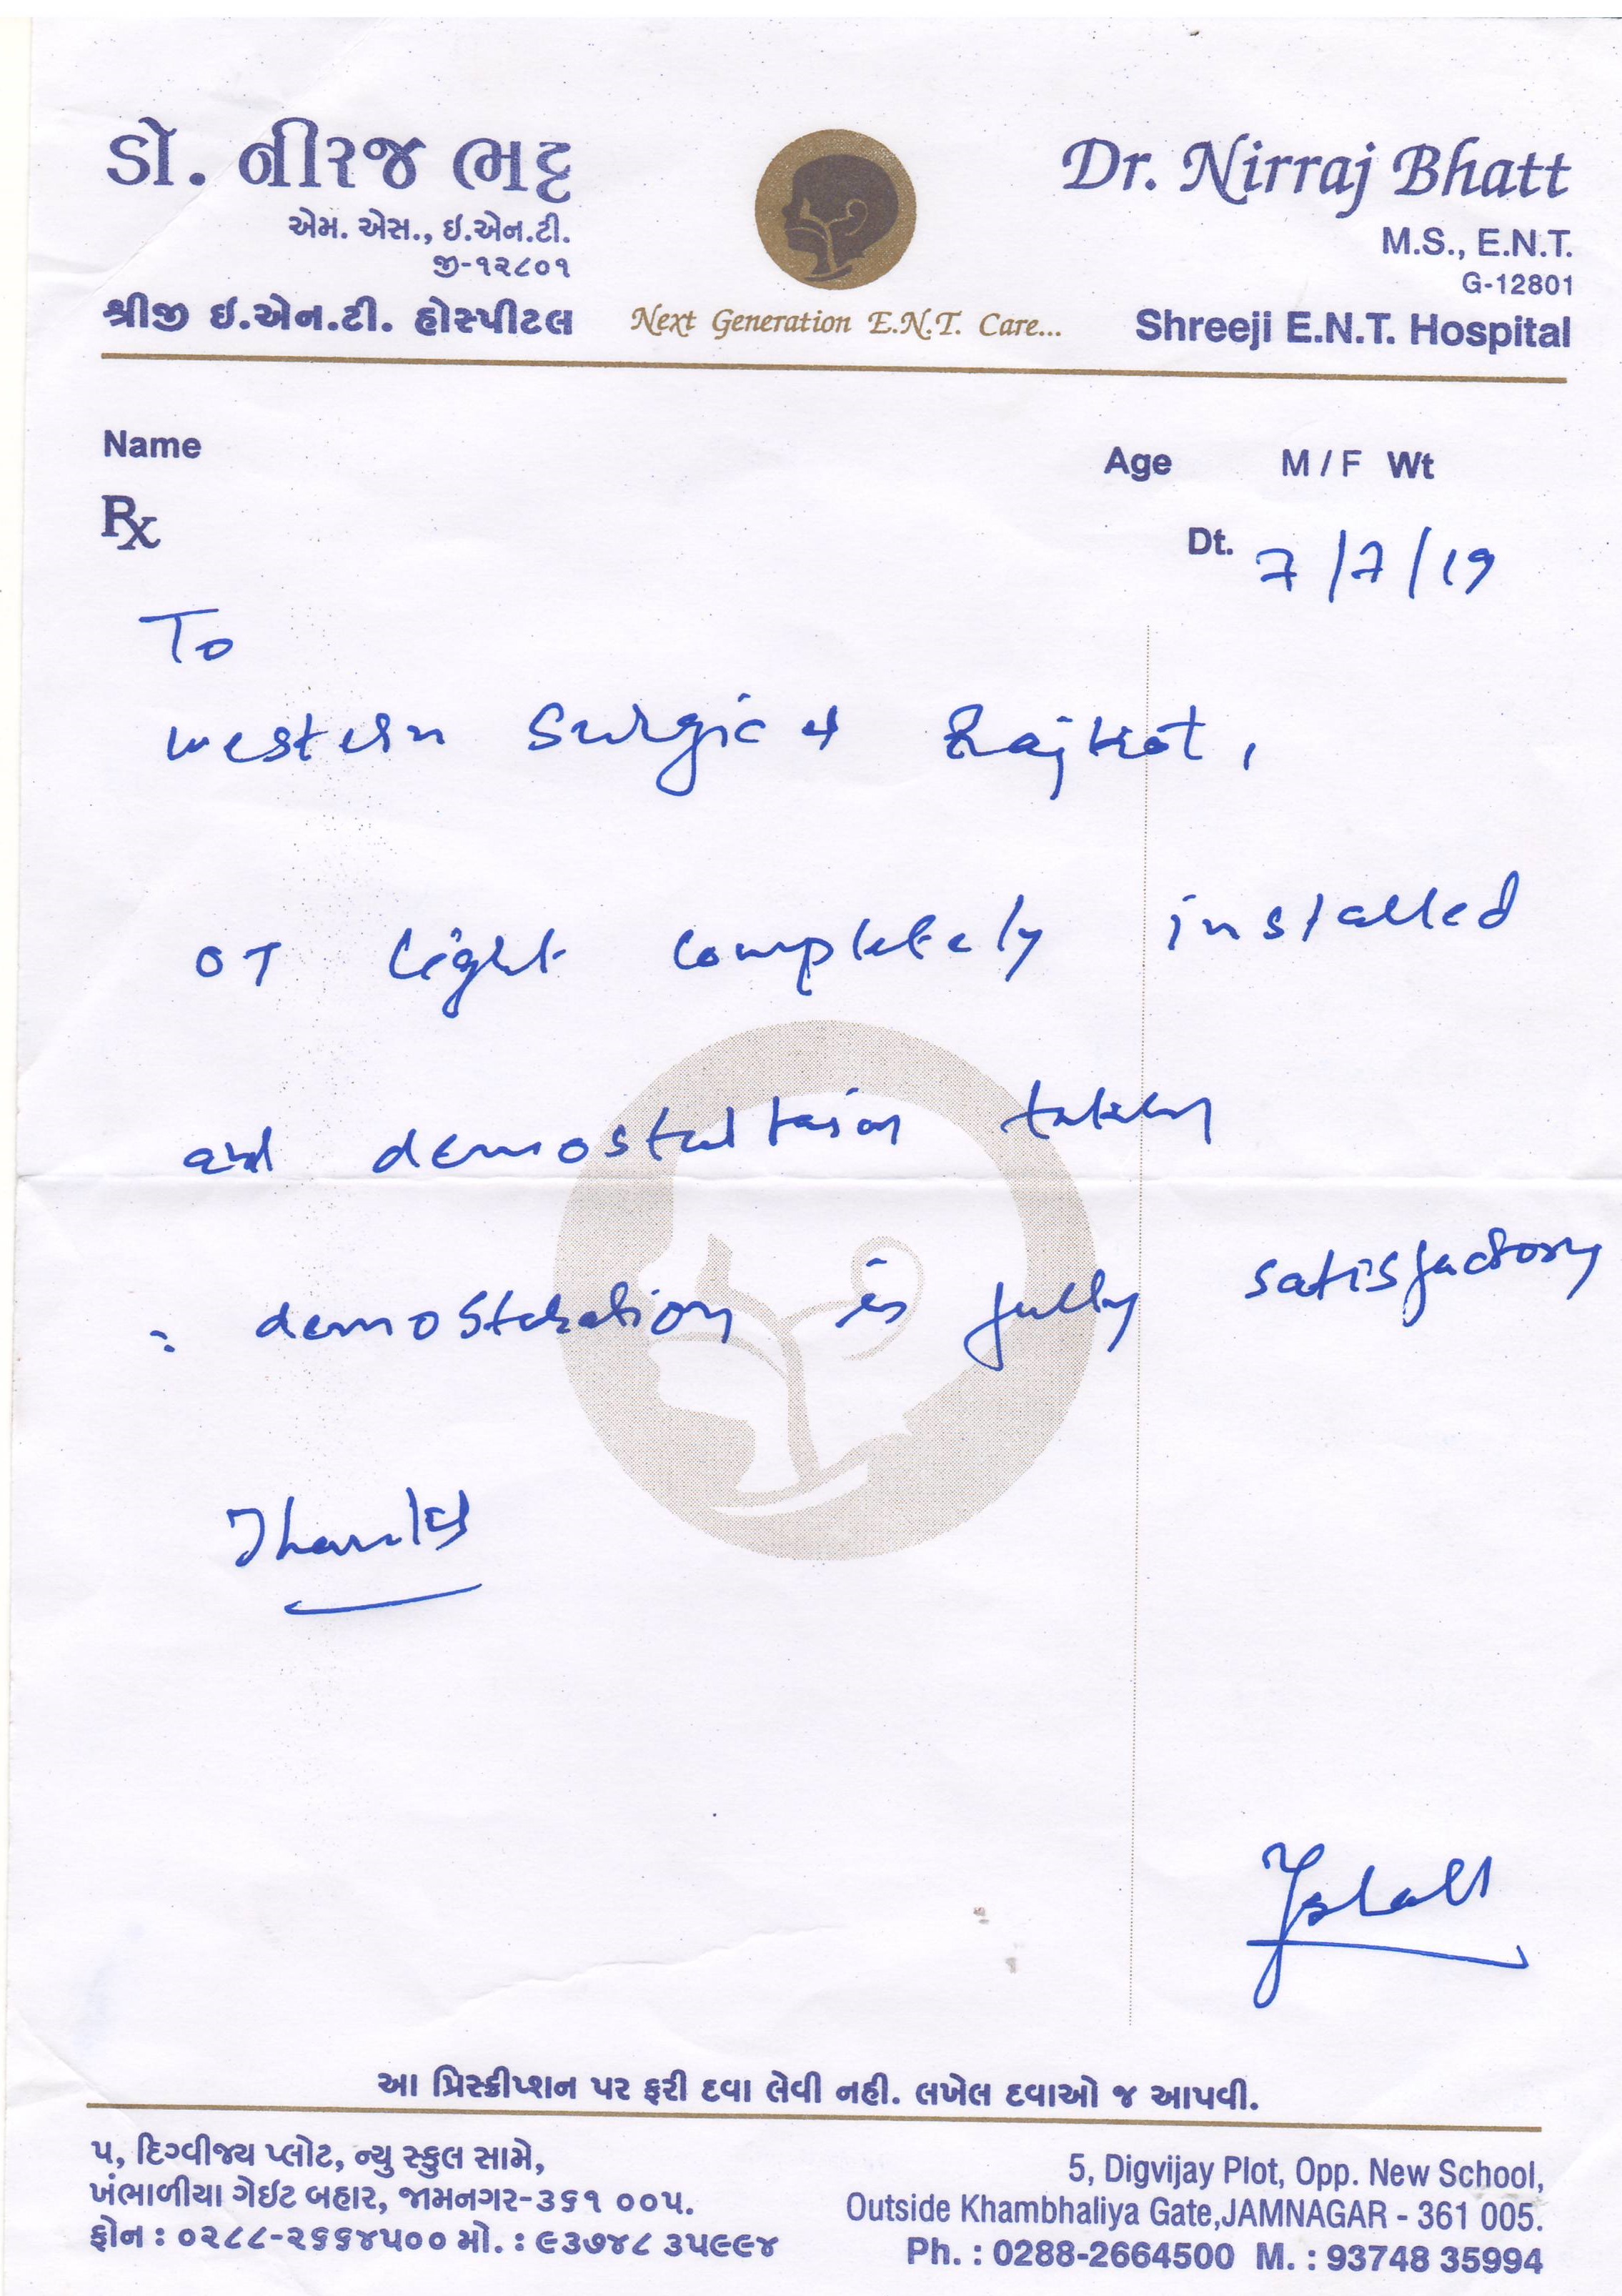 ડો. નીરજ ભટ્ટ
એમ. એસ., ઇ.એન.ટી.
જી-૧૨૮૦૧
શ્રીજી ઇ.એન.ટી. હોસ્પીટલ
Next Generation E.N.T. Care...
Dr. Nirraj Bhatt
M.S., E.N.T.
G-12801
Shreeji E.N.T. Hospital
Name
Age M / F Wt
Rx
Dt. 7/7/19
To
western Surgical Rajkot,
OT light completely installed
and demostration taken
: demostration is fully satisfactory
Thanks
આ પ્રિસ્ક્રીપ્શન પર ફરી દવા લેવી નહી. લખેલ દવાઓ જ આપવી.
૫, દિગ્વીજય પ્લોટ, ન્યુ સ્કુલ સામે,
ખંભાળીયા ગેઇટ બહાર, જામનગર-૩૬૧ ૦૦૫.
ફોન : ૦૨૮૮-૨૬૬૪૫૦૦ મો. : ૯૩૭૪૮ ૩૫૯૯૪
5, Digvijay Plot, Opp. New School,
Outside Khambhaliya Gate,JAMNAGAR - 361 005.
Ph. : 0288-2664500 M. : 93748 35994